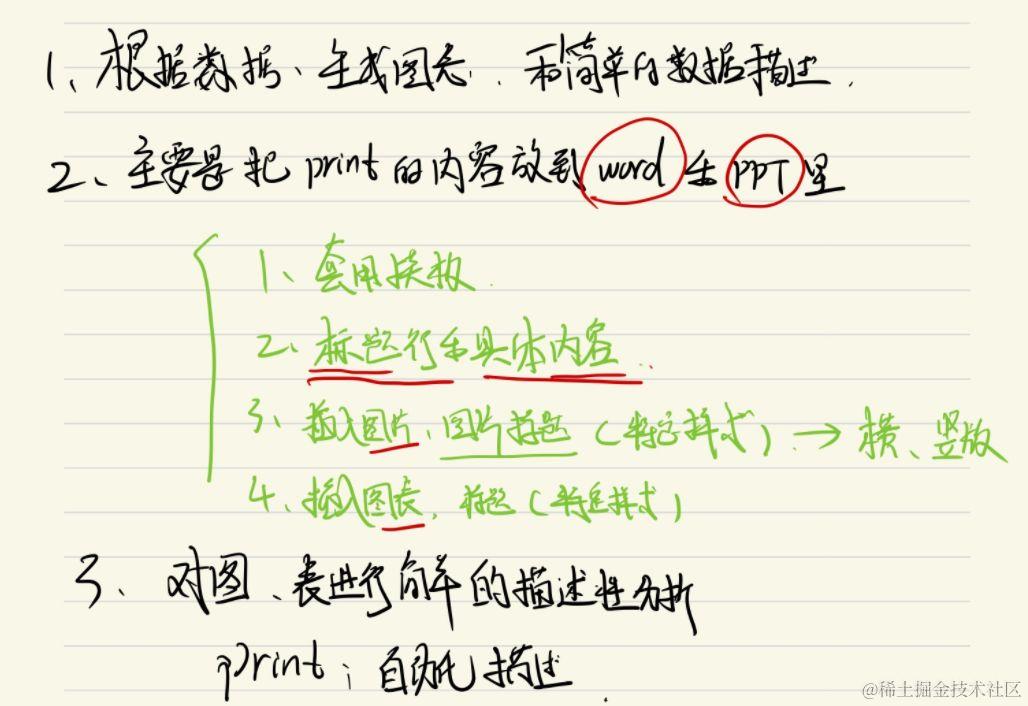 1、根据数据、生成图表、和简单的数据描述.
2、主要是把print的内容放到word和PPT里
1、套用模板.
2、标题行和具体内容..
3、插入图片、图片标题(特定样式)、→ 横、竖版
4、插入图表,标题(特定样式)
3、对图、表进行简单的描述性分析
print;自动化描述.
@稀土掘金技术社区